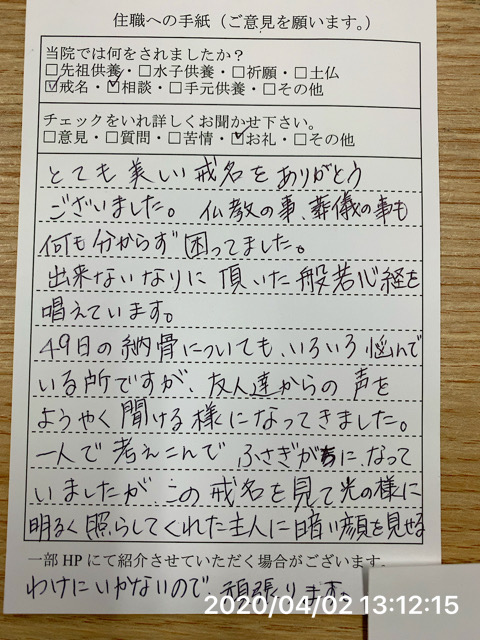 住職への手紙（ご意見を願います。）
当院では何をされましたか？
□先祖供養・□水子供養・□祈願・□土仏
☑戒名・☑相談・□手元供養・□その他
チェックをいれ詳しくお聞かせ下さい。
□意見・□質問・□苦情・☑お礼・□その他
とても美しい戒名をありがとう
ございました。仏教の事、葬儀の事も
何も分からず困ってました。
出来ないなりに頂いた般若心経を
唱えています。
49日の納骨についても、いろいろ悩んで
いる所ですが、友人達からの声を
ようやく聞ける様になってきました。
一人で考えこんでふさぎがちに、なって
いましたが、この戒名を見て光の様に
明るく照らしてくれた主人に暗い顔を見せる
一部HPにて紹介させていただく場合がございます。
わけにいかないので、頑張ります。
2020/04/02 13:12:15